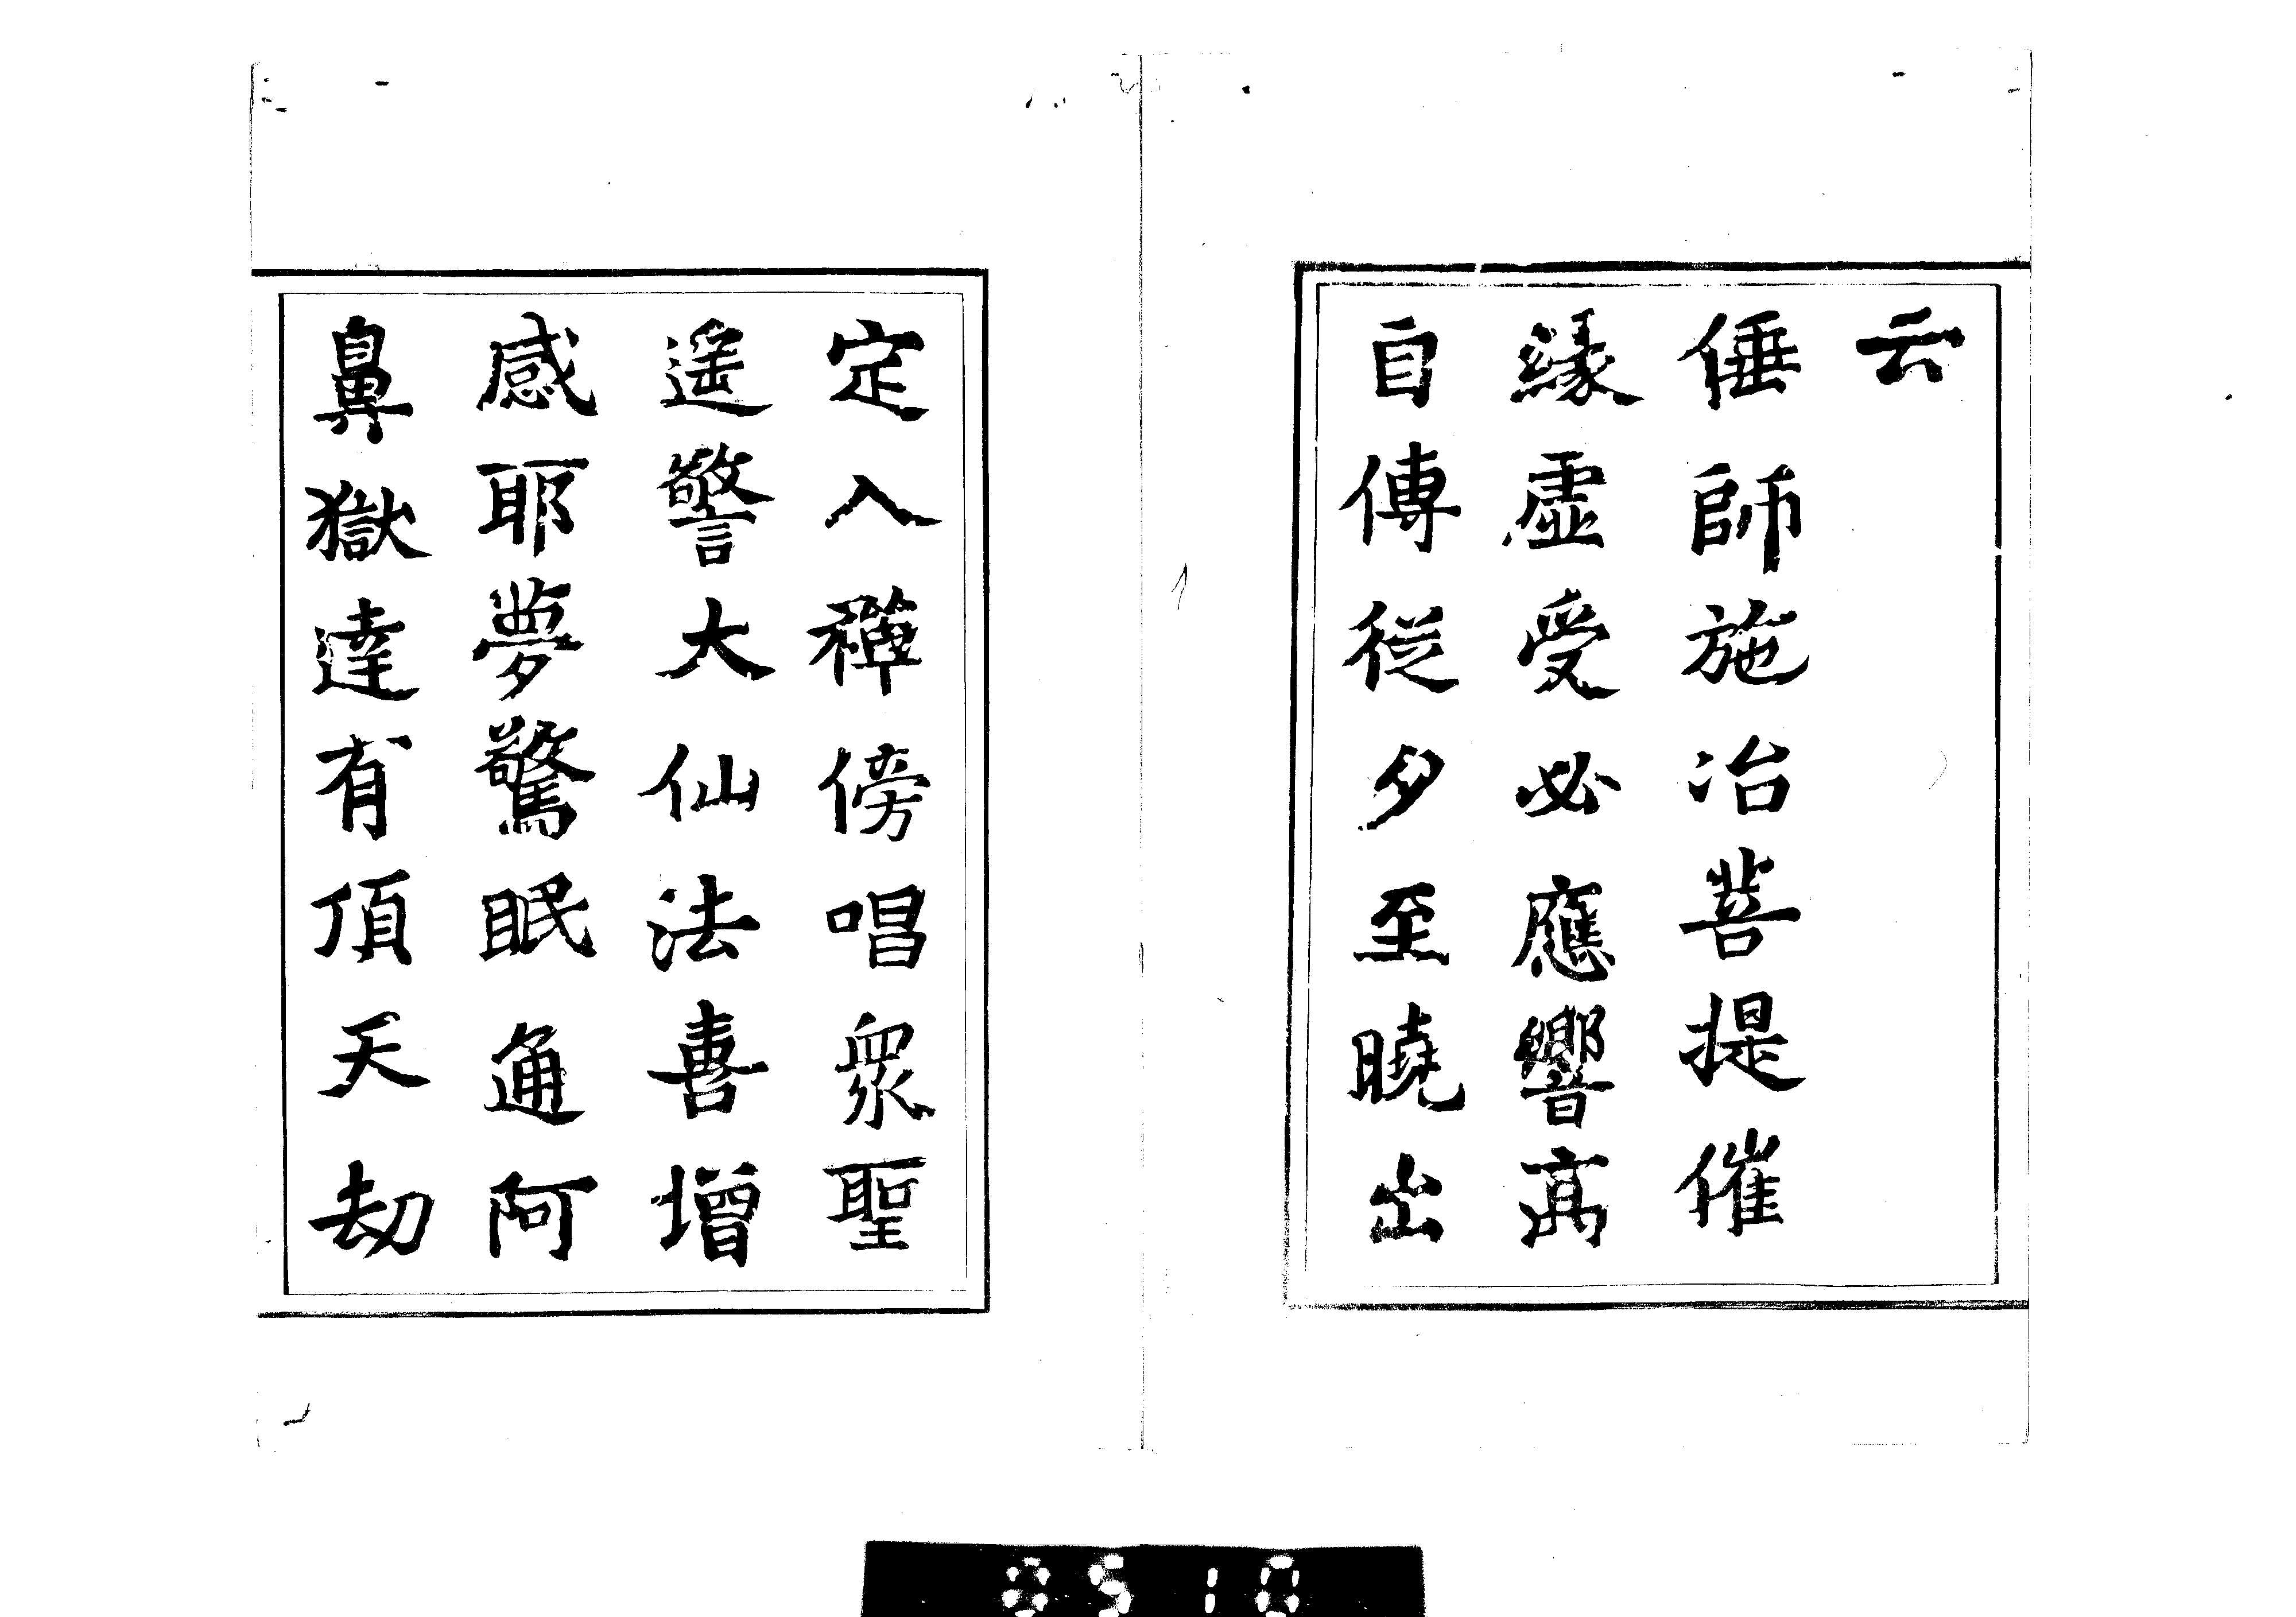 云
倕師施冶菩提催
縁虚受必應響髙
自傳從夕至曉出
定入禪傍唱衆聖
遥警大仙法喜增
感耶夢驚眠通阿
鼻獄達有頂天劫
0510